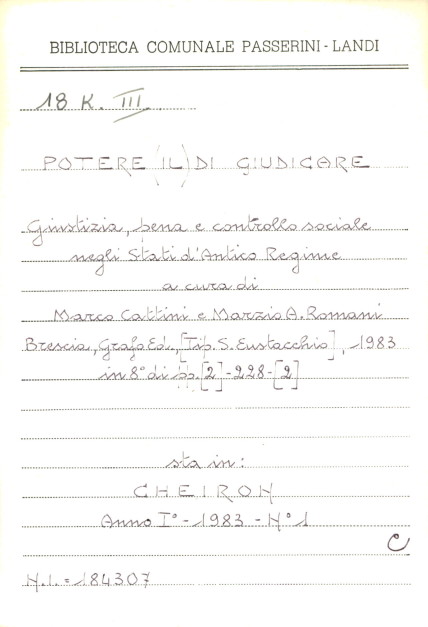 BIBLIOTECA COMUNALE PASSERINI - LANDI
18 K. III.
POTERE (IL) DI GIUDICARE
Giustizia, pena e controllo sociale
negli Stati d'Antico Regime
a cura di
Marco Cattini e Marzio A. Romani
Brescia, Grafo Ed., [Tip. S. Eustacchio], 1983
in 8° di pp. [2] - 228 - [2]
sta in:
CHEIRON
Anno I° - 1983 - N° 1
C
N.I. = 184307